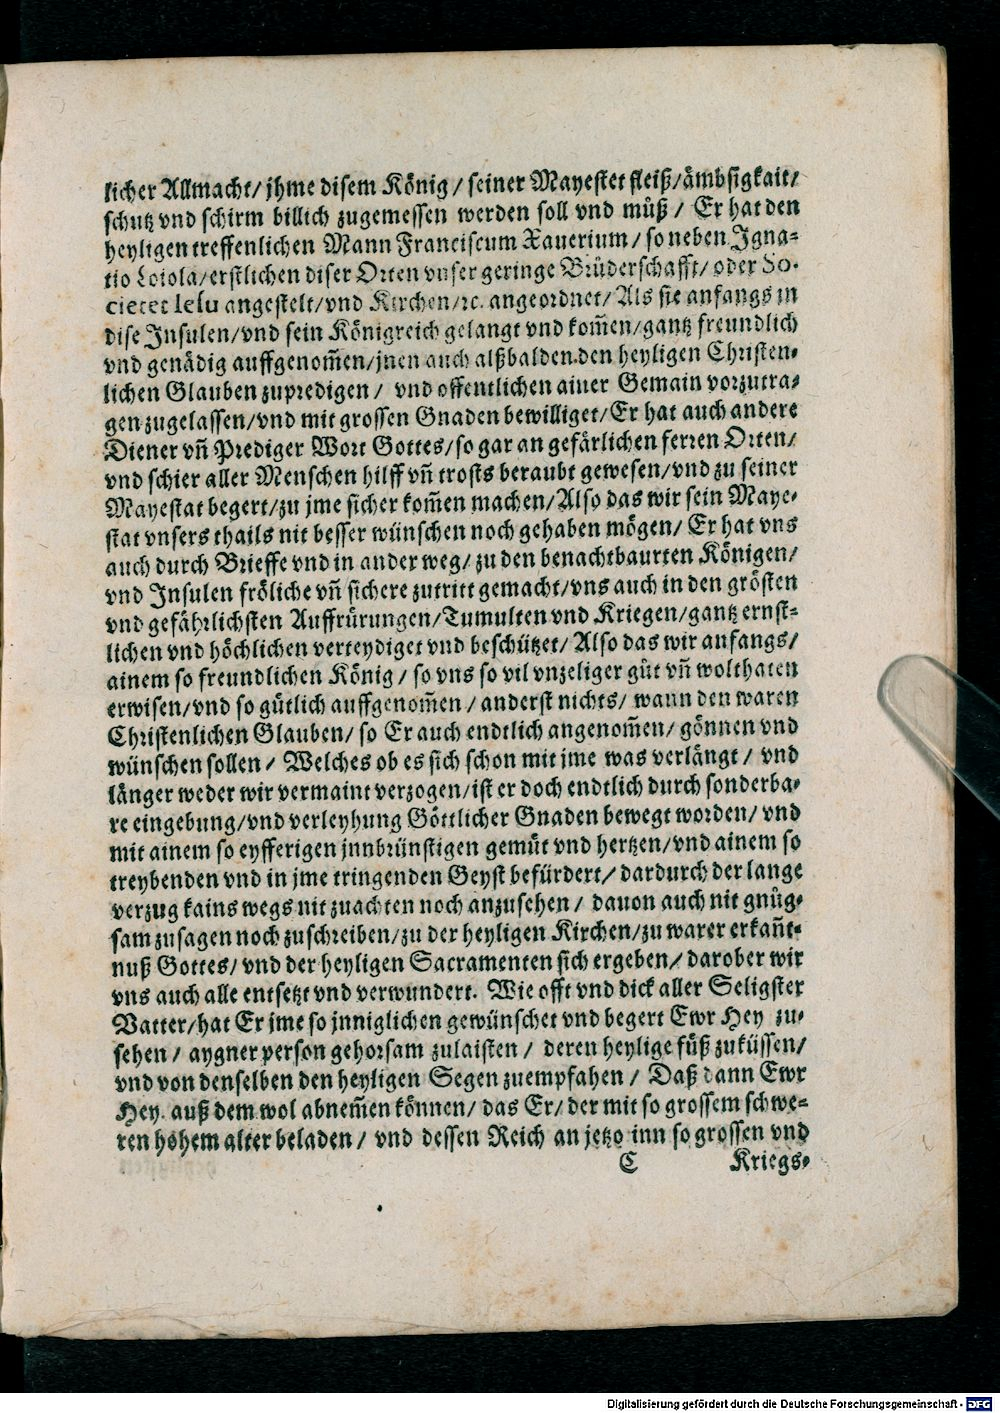 licher Allmacht/ jhme disem König / seiner Mayestet fleiß/ämbsigkait/
schutz vnd schirm billich zugemessen werden soll vnd müß / Er hat den
heyligen treffenlichen Mann Franciscum Xauerium / so neben Igna-
tio Loiola/erstlichen diser Orten vnser geringe Brüderschafft/ oder So-
cietet Iesu angestelt/vnd Kirchen/rc. angeordnet/ Als sie anfangs in
dise Insulen/vnd sein Königreich gelangt vnd kom̃en/gantz freundlich
vnd genädig auffgenom̃en/jnen auch alßbalden den heyligen Christen-
lichen Glauben zupredigen / vnd offentlichen ainer Gemain vorzutra-
gen zugelassen/vnd mit grossen Gnaden bewilliget/Er hat auch andere
Diener vñ Prediger Wort Gottes/so gar an gefärlichen ferren Orten/
vnd schier aller Menschen hilff vñ trosts beraubt gewesen/vnd zu seiner
Mayestat begert/zu jme sicher kom̃en machen/Also das wir sein Maye-
stat vnsers thails nit besser wünschen noch gehaben mögen/ Er hat vns
auch durch Brieffe vnd in ander weg/ zu den benachtbaurten Königen/
vnd Insulen fröliche vñ sichere zutritt gemacht/vns auch in den grösten
vnd gefährlichsten Auffrürungen/Tumulten vnd Kriegen/gantz ernst-
lichen vnd höchlichen verteydiget vnd beschützet/ Also das wir anfangs/
ainem so freundlichen König / so vns so vil vnzeliger güt vñ wolthaten
erwisen/vnd so gütlich auffgenom̃en / anderst nichts/ wann den waren
Christenlichen Glauben/ so Er auch endtlich angenom̃en/ gönnen vnd
wünschen sollen / Welches ob es sich schon mit jme was verlängt / vnd
länger weder wir vermaint verzogen/ist er doch endtlich durch sonderba-
re eingebung/vnd verleyhung Göttlicher Gnaden bewegt worden/ vnd
mit ainem so eyfferigen jnnbrünstigen gemüt vnd hertzen/vnd ainem so
treybenden vnd in jme tringenden Geyst befürdert/ dardurch der lange
verzug kains wegs nit zuachten noch anzusehen / dauon auch nit gnüg-
sam zusagen noch zuschreiben/zu der heyligen Kirchen/zu warer erkañt-
nuß Gottes/ vnd der heyligen Sacramenten sich ergeben/ darober wir
vns auch alle entsetzt vnd verwundert. Wie offt vnd dick aller Seligster
Vatter/hat Er jme so jnniglichen gewünschet vnd begert Ewr Hey zu-
sehen / aygner person gehorsam zulaisten / deren heylige füß zuküssen/
vnd von denselben den heyligen Segen zuempfahen / Daß dann Ewr
Hey. auß dem wol abnem̃en können/ das Er/ der mit so grossem schwe-
ren hohem alter beladen / vnd dessen Reich an jetzo inn so grossen vnd
C Kriegs-
Digitalisierung gefördert durch die Deutsche Forschungsgemeinschaft - DFG